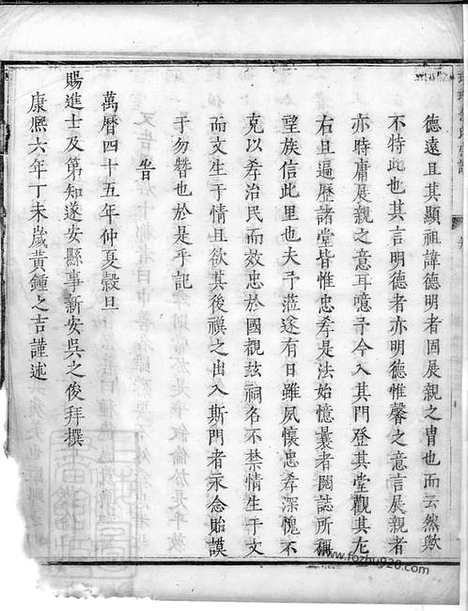 德遠且其顯祖諱德明者固展親之胄也而云然歟
不特此也其言明德者亦明德惟馨之意言展親者
亦時庸展親之意耳噫予今入其門登其堂觀其左
右且遍歷諸堂皆惟忠孝是法始憶曩者閱誌所稱
望族信此里也夫予蒞遂有日雖夙懷忠孝深愧不
克以孝治民而效忠於國觀茲祠名不禁情生于文
而文生于情且欲其後禩之出入斯門者永念貽謨
于勿替也於是乎記
旹
萬曆四十五年仲夏穀旦
賜進士及第知遂安縣事新安吳之俊拜撰
康熙六年丁未歲黃鍾之吉謹述
www.fozhu920.com